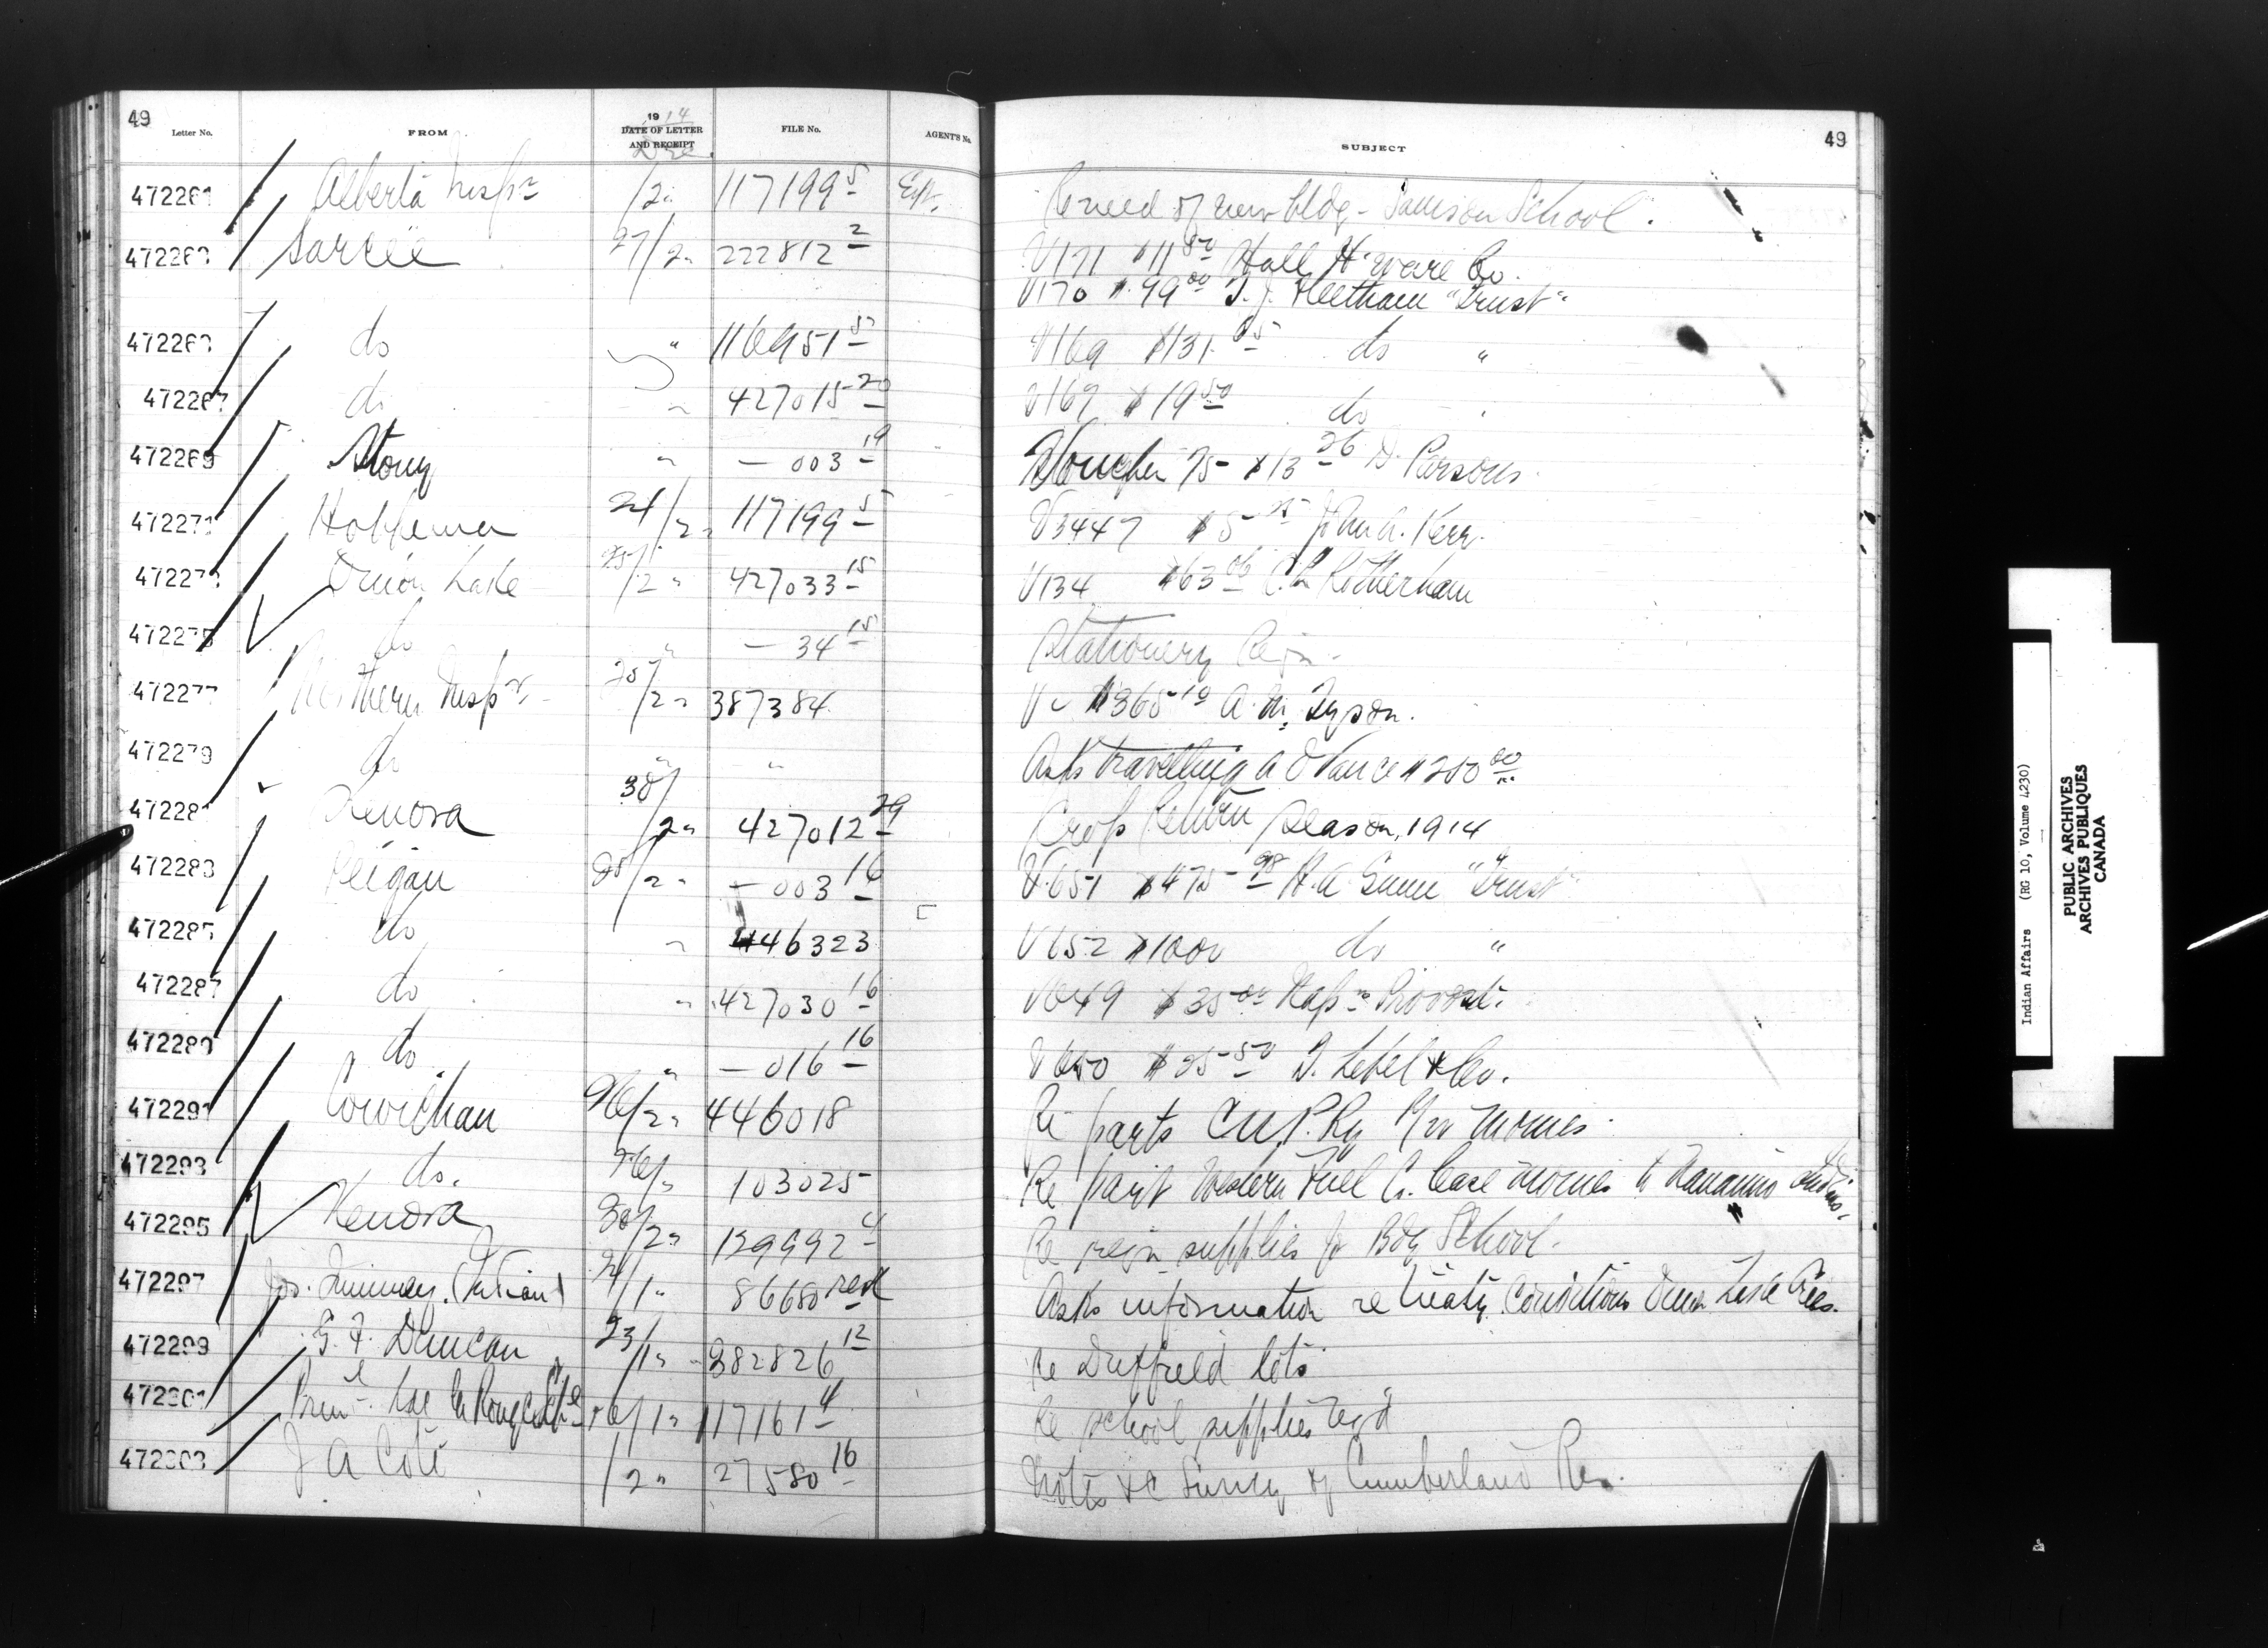 49
Letter No. FROM 1914 DATE OF LETTER AND RECEIPT Dec. FILE No. AGENT'S No. SUBJECT 49
472261 Alberta Insp'r /2 " 117199 5 Re need of new bldg - Samson School.
472263 Sarcee 27/2 " 222812 2 V171 $11 80 Hall H'ware Co.
V170 $99 00 T. J. Fleetham "Trust"
472263 do " 116951 V169 $131. do "
472267 do " 427015 20 V167 $19 50 do "
472269 Stony " — 003 19 Voucher 75 $13 26 D. Parsons.
472271 Hobbema 24/2 " 117199 5 V3447 $5 John A. Kerr.
472273 Onion Lake 25/2 " 427033 15 V134 $63 06 Rotherham
472275 do " — 34 15 Stationery Reqn.
472277 Northern Insp'r 25/2 " 387384 V $365 10 A. M. Tyson.
472279 do " " Asks travelling advance $250 00
472281 Kenora 30/2 " 427012 29 Crop Return Season, 1914
472283 Peigan 25/2 " — 003 16 V.651 $475 98 H. A. Gunn "Trust"
472285 do " 446323 V652 $1000 do "
472287 do " 427030 16 V649 $35 00 Provost.
472289 do. " — 016 16 V650 $25 50 T. Lebel & Co.
472291 Cowichan 26/2 " 446018 Re parts C.N.P. Ry R/W monies.
472293 do. 26/ " 103025 Re pay't Western Fuel Co. lease monies to Nanaimo Indians.
472295 Kenora 30/2 " 129992 4 Re reqn supplies for Bdg School.
472297 Jos. (Indian) /1 " 86680 red Asks information re treaty conditions Onion Lake
472299 G. F. Duncan 23/1 " 382826 12 Re Duffield lots
472301 Prin'l Lac la Ronge Sch'l 16/1 " 117161 4 Re school supplies reqd
472303 J A Coté 1/2 " 27580 16 Notes &c Survey of Cumberland Res.
Indian Affairs (RG 10, Volume 4230)
PUBLIC ARCHIVES
ARCHIVES PUBLIQUES
CANADA